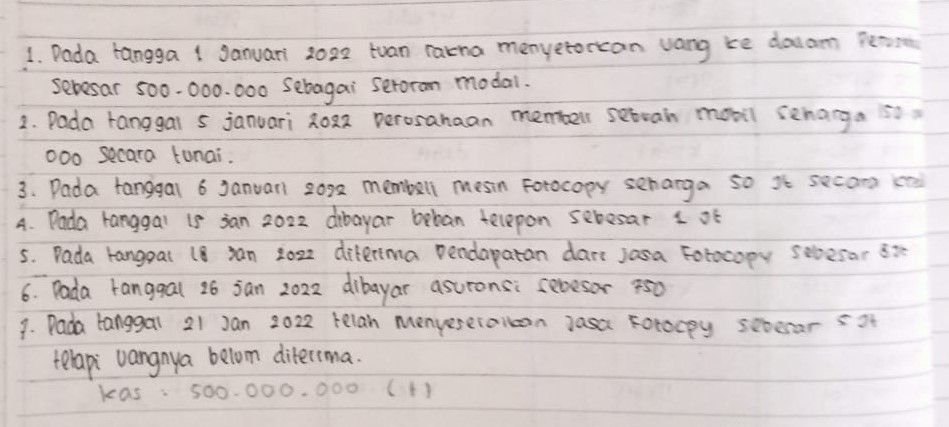 1. Pada tangga 1 Januari 2022 tuan rakha menyetorkan uang ke dalam
sebesar 500.000.000 sebagai setoran modal.
2. Pada tanggal 5 januari 2022 perusahaan membeli sebuah mobil seharga
000 secara tunai.
3. Pada tanggal 6 Januari 2022 membeli mesin Fotocopy seharga 50 Jt secara
4. Pada tanggal 15 Jan 2022 dibayar beban telepon sebesar 1 Jt
5. Pada tanggal 18 Jan 2022 diterima Pendapatan dari jasa Fotocopy sebesar 8 Jt
6. Pada tanggal 26 Jan 2022 dibayar asuransi sebesar 750
7. Pada tanggal 21 Jan 2022 telah menyeseraikan Jasa Fotocpy sebesar 5 Jt
tetapi uangnya belum diterima.
kas : 500.000.000 (+)